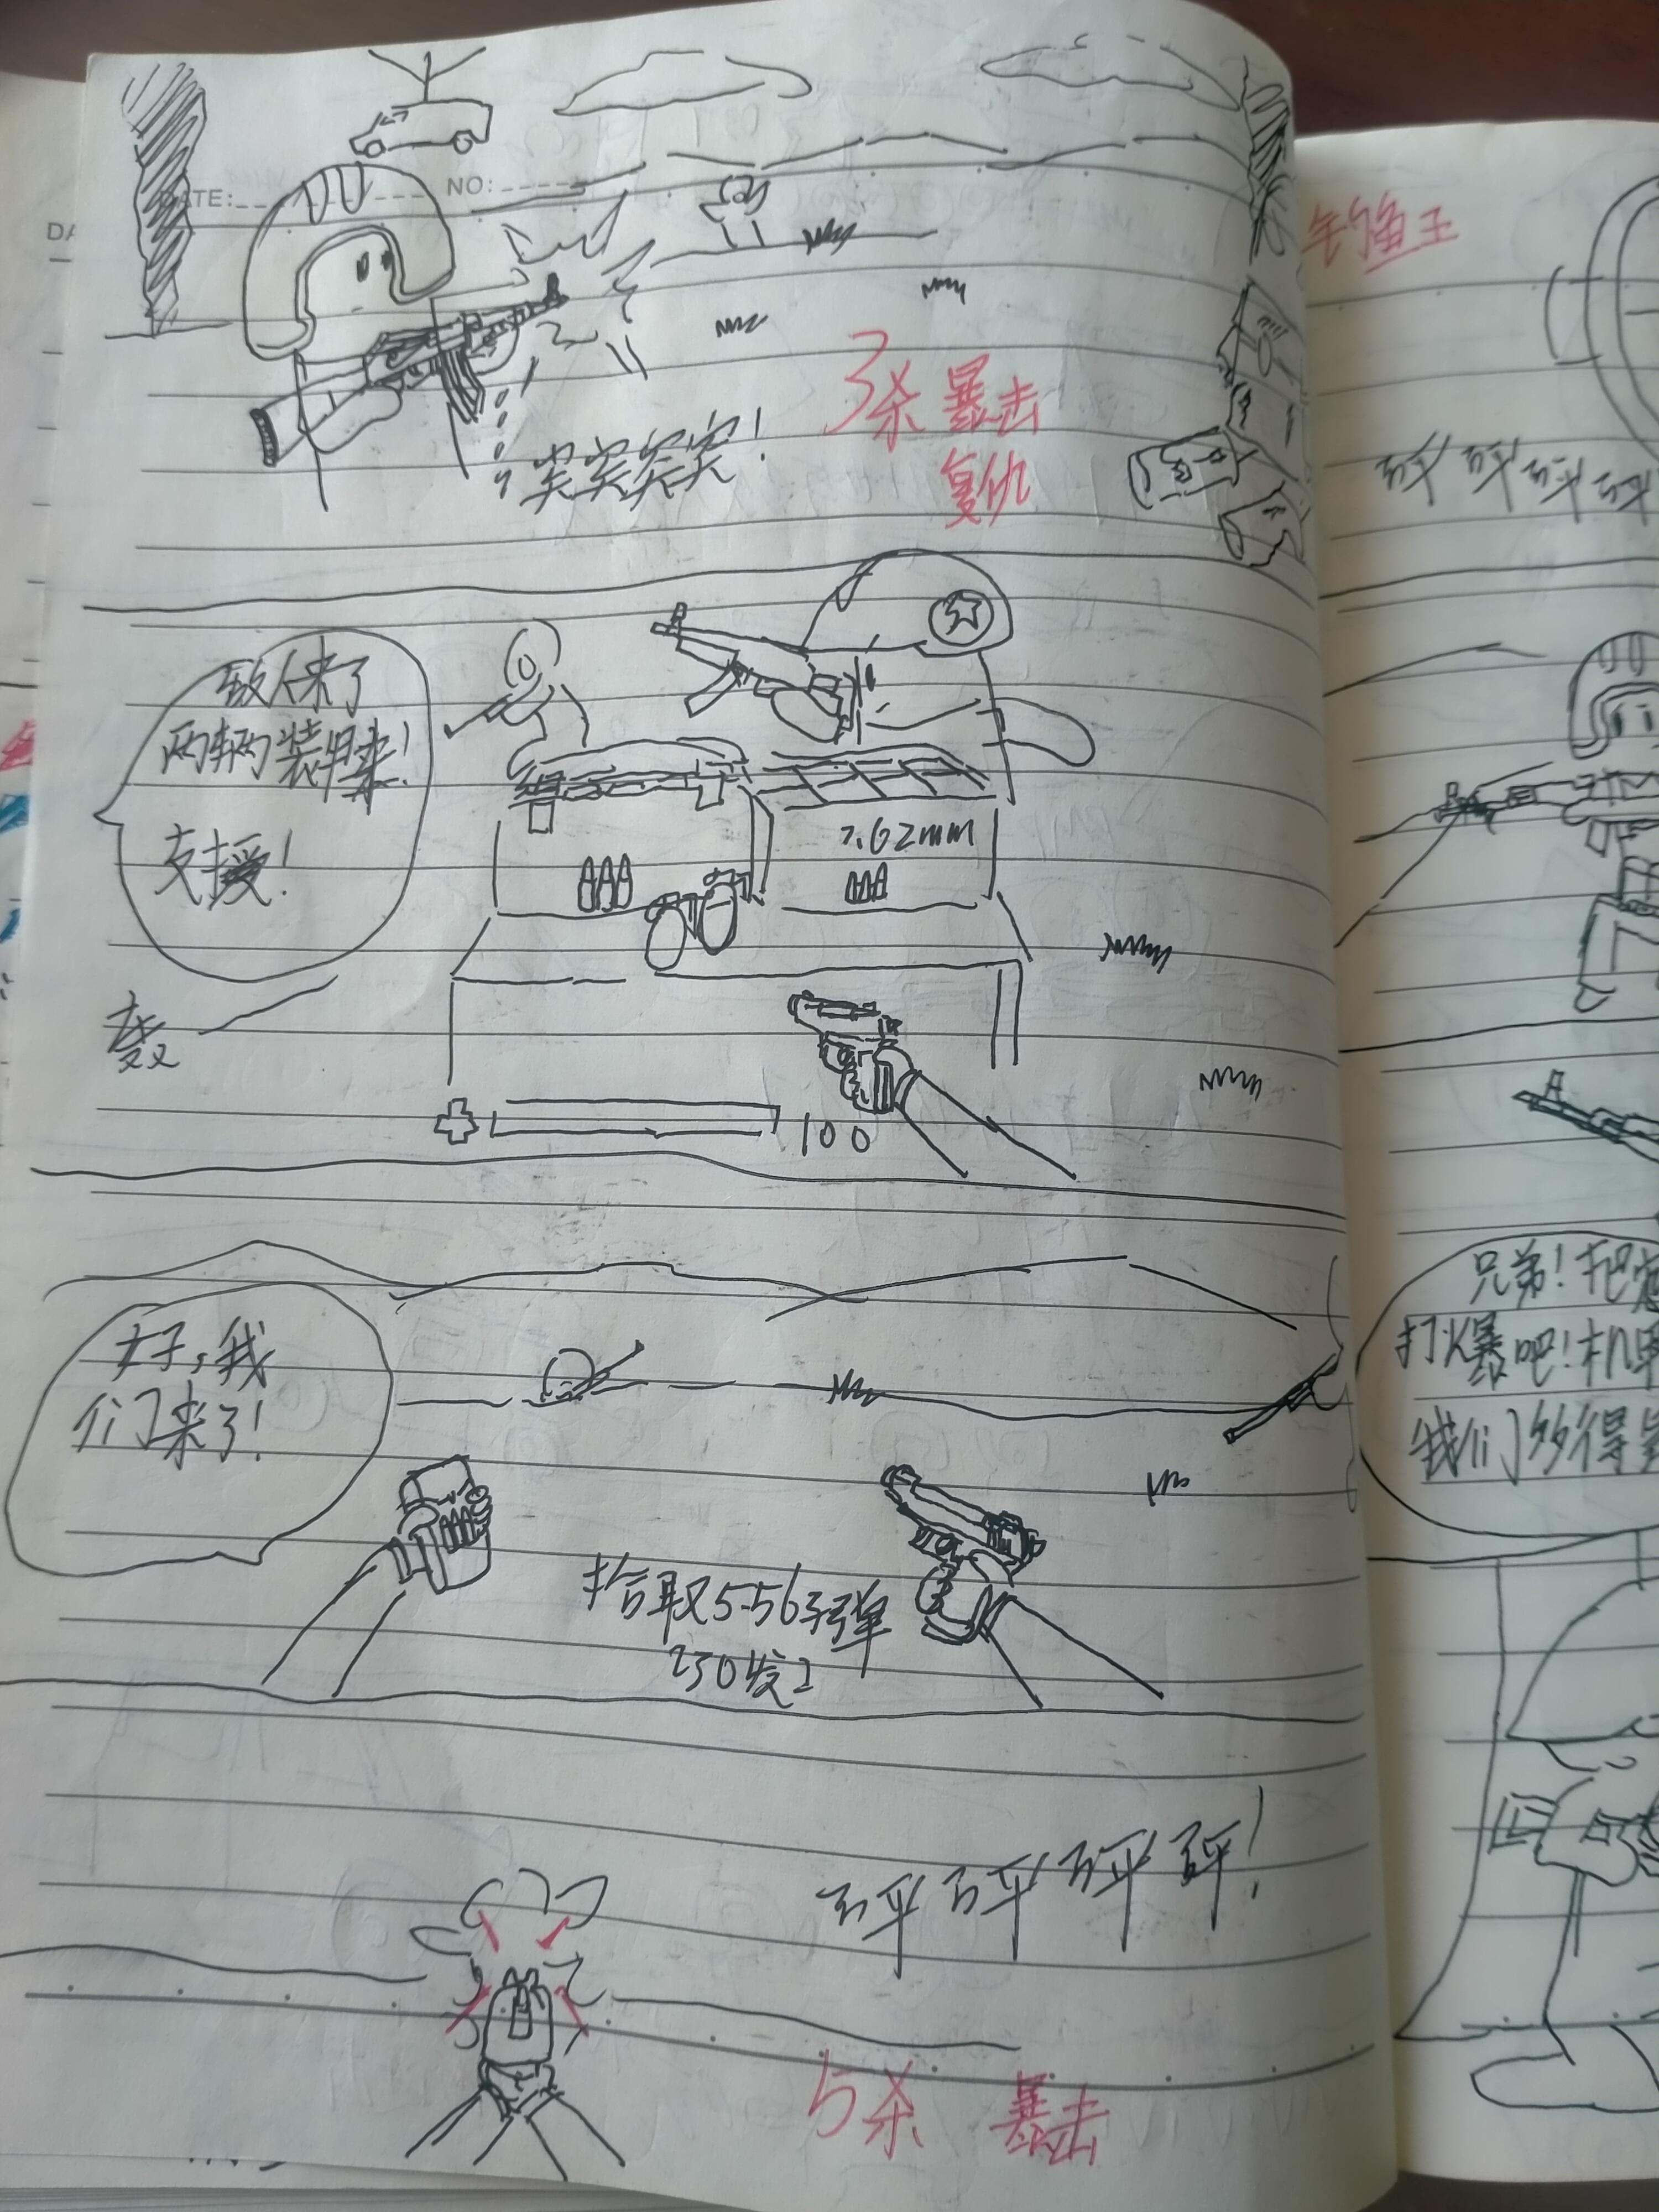 DATE:
NO:
3杀 暴击
复仇
突突突突!
敌人来了
两辆装甲来!
支援!
7.62mm
轰
100
好,我
们来了!
拾取5.56子弹
250发
砰砰砰砰!
5杀 暴击
钓鱼王
砰砰砰砰
兄弟!把
打爆吧!机甲
我们多得